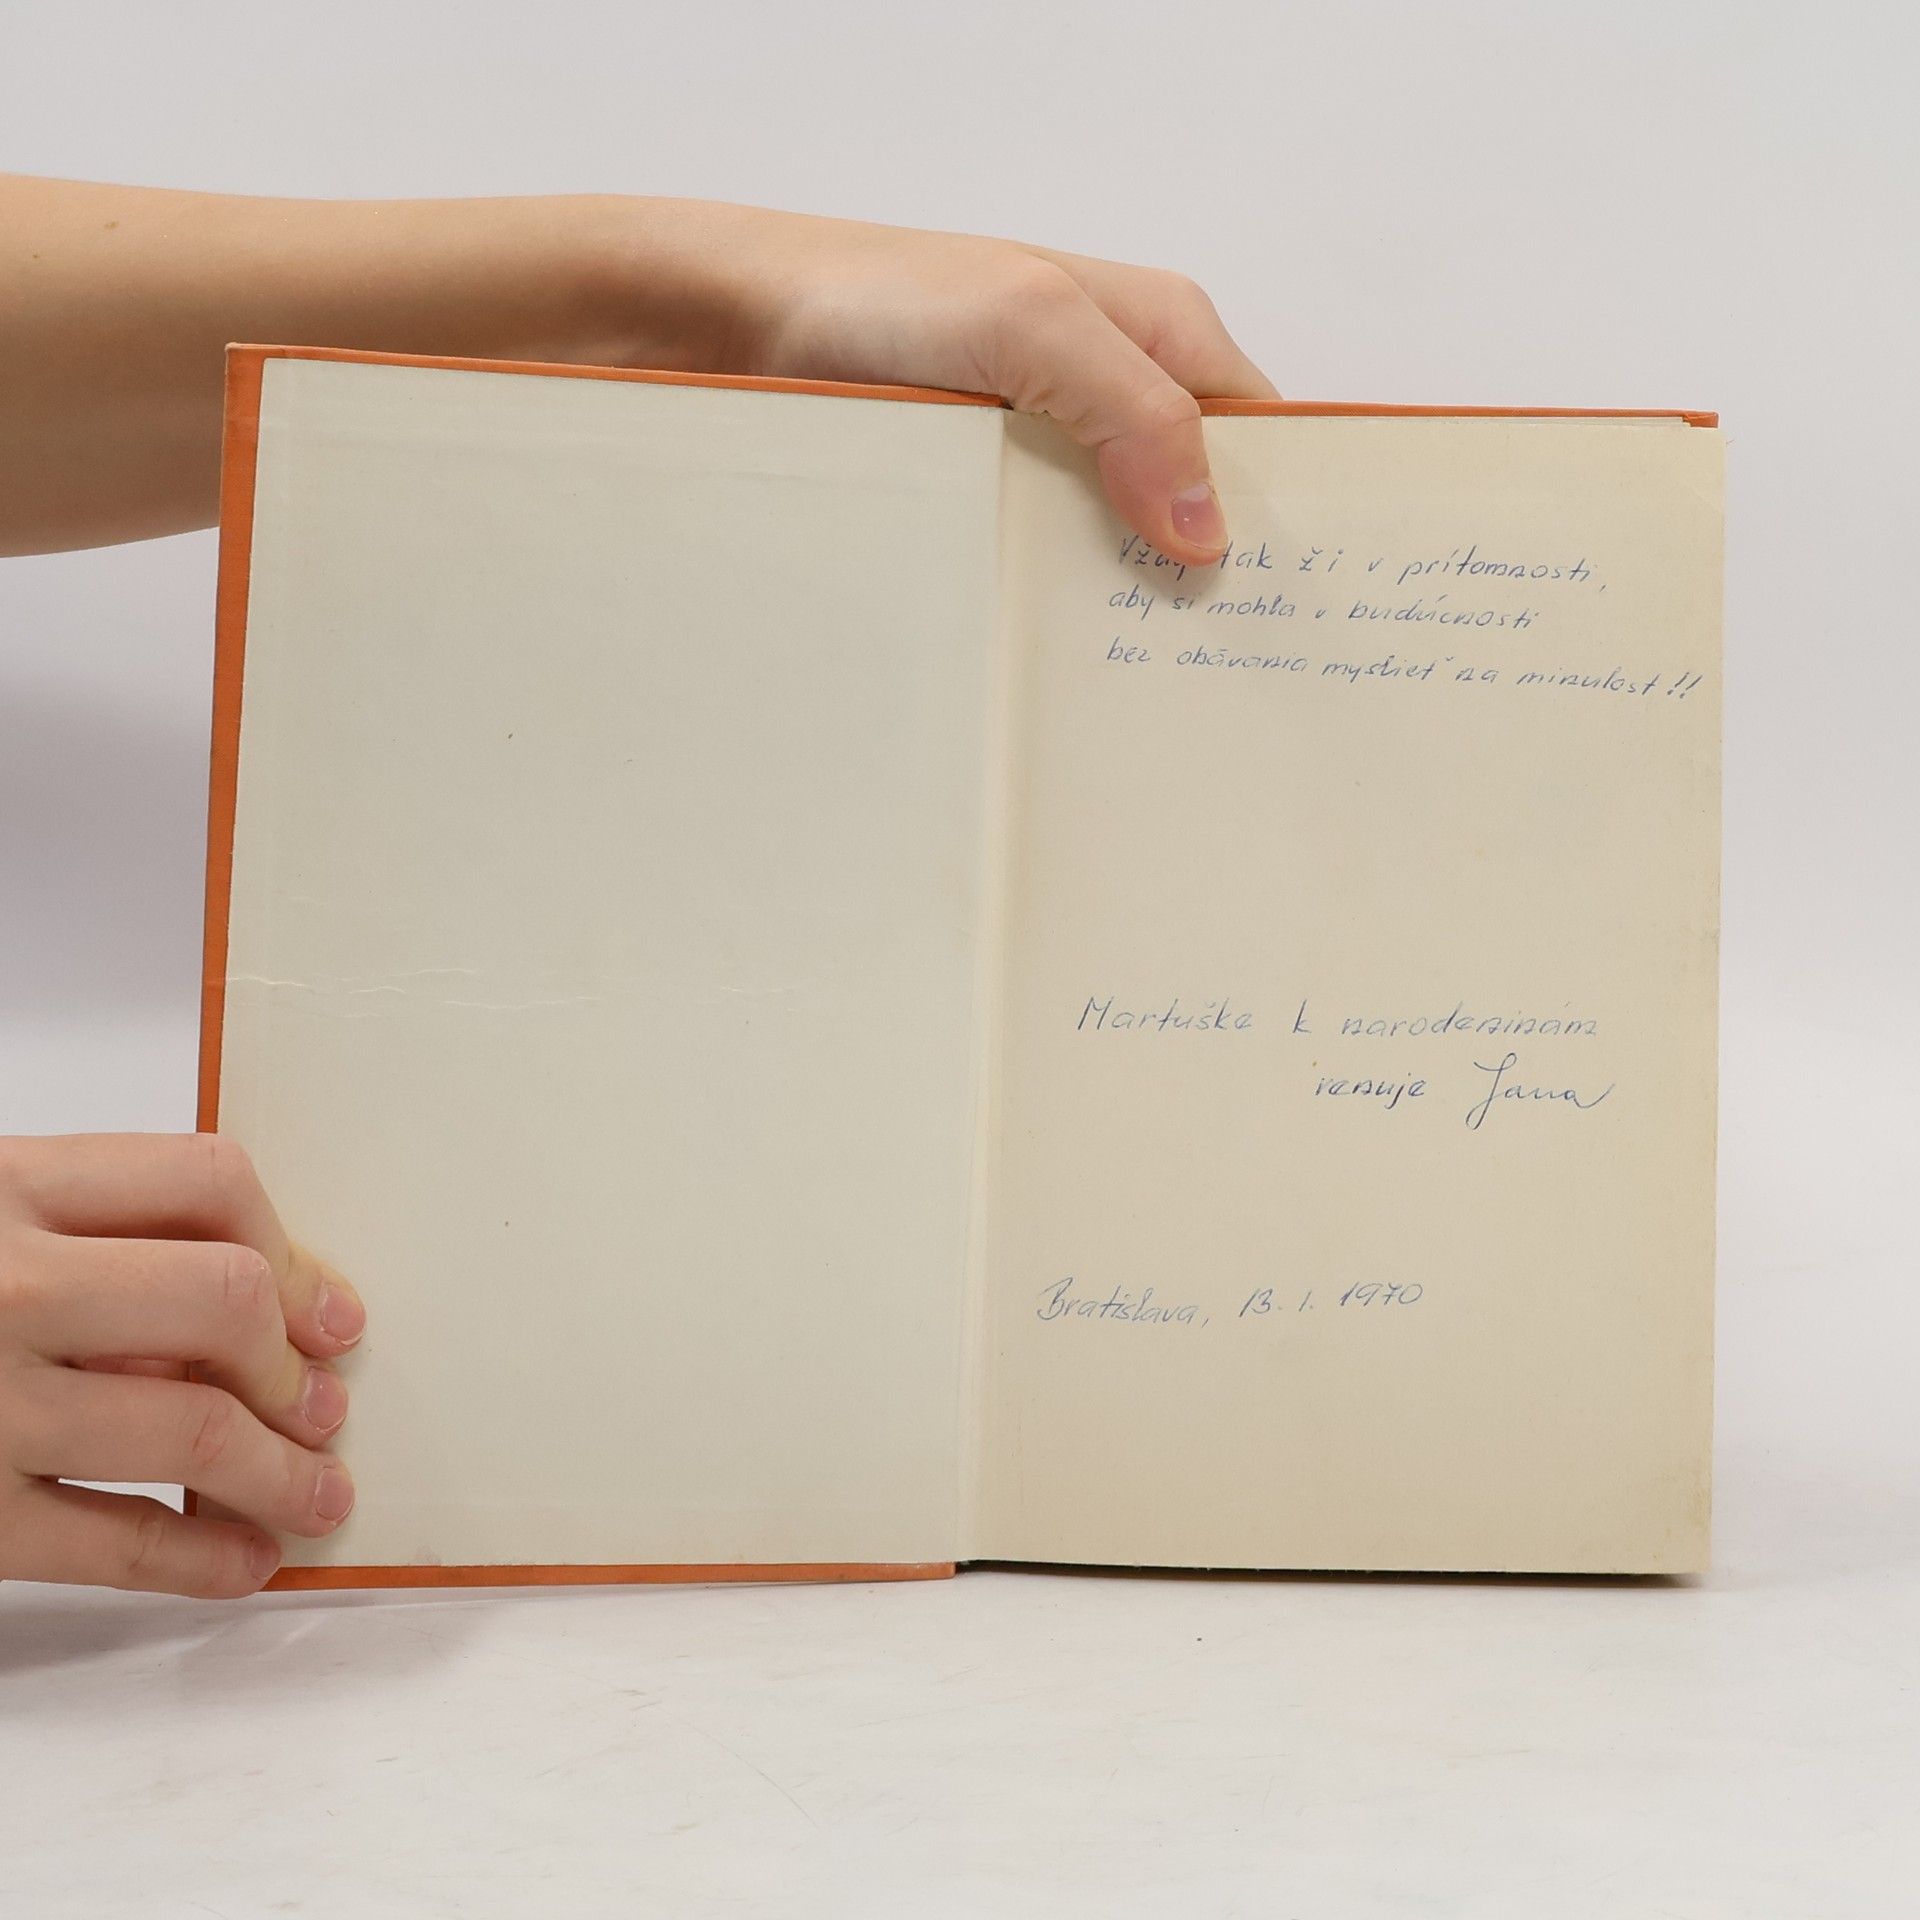 Vždy tak ži v prítomnosti,
aby si mohla v budúcnosti
bez obávania myslieť na minulosť!!
Martuške k narodeninám
venuje Jana
Bratislava, 13. 1. 1970